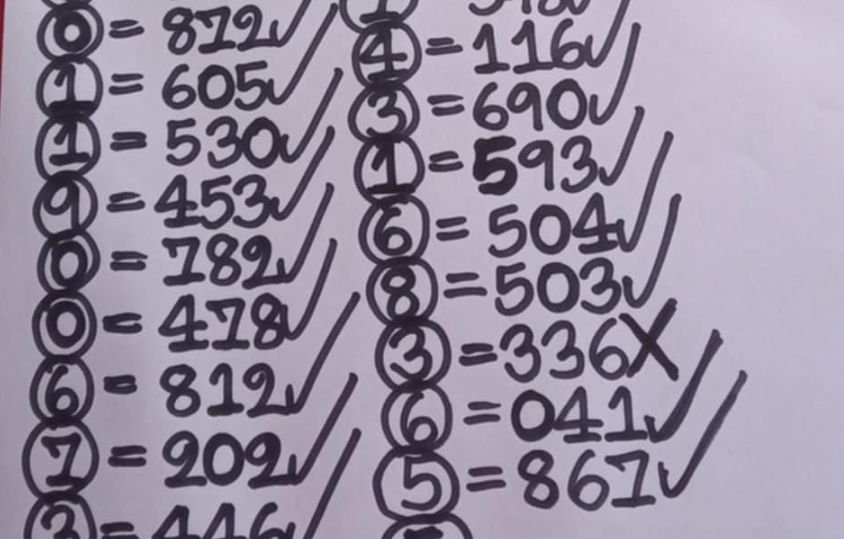 0 = 872✓
1 = 605✓
1 = 530✓
9 = 453✓
0 = 782✓
0 = 478✓
6 = 812✓
7 = 202✓
= 446✓
4 = 116✓
3 = 690✓
1 = 593✓
6 = 504✓
8 = 503✓
3 = 336X
6 = 041✓
5 = 867✓